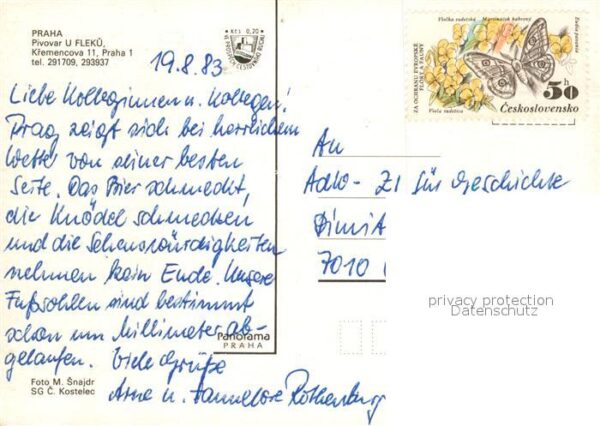 PRAHA
Pivovar U FLEKŮ,
Křemencova 11, Praha 1
tel. 291709, 293937
Kčs 0,20
19.8.83
Liebe Kolleginnen u. Kollegen!
Prag zeigt sich bei herrlichem
Wetter von seiner besten
Seite. Das Bier schmeckt,
die Knödel schmecken
und die Sehenswürdigkeiten
nehmen kein Ende. Unsere
Fußsohlen sind bestimmt
schon um Millimeter ab-
gelaufen. Viele Grüße
Arne u. Hannelore Rothenburg
Panorama
PRAHA
Foto M. Šnajdr
SG Č. Kostelec
ZA OCHRANU EVROPSKÉ
FLÓRY A FAUNY
Violka sudetská
Viola sudetica
Československo
50 h
An
AdW - ZI für Geschichte
Dimit
7010
privacy protection
Datenschutz